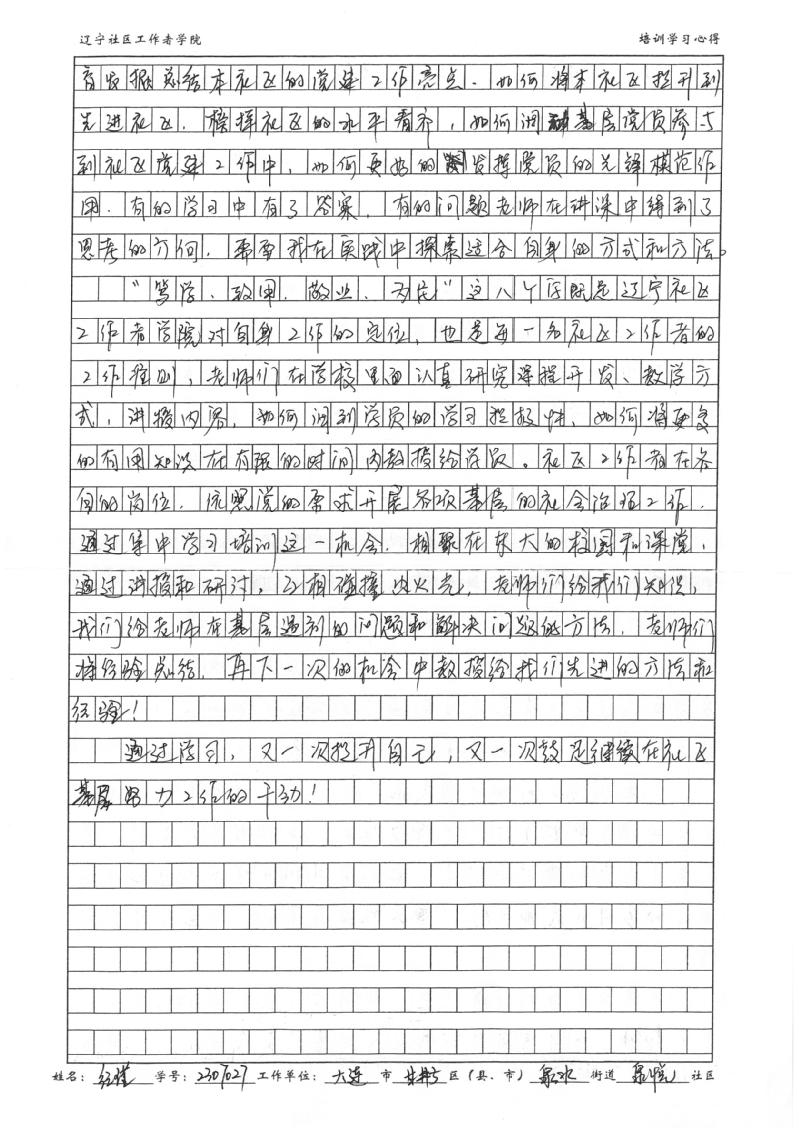 辽宁社区工作者学院 培训学习心得
育发掘总结本社区的党建工作亮点、如何将本社区提升到
先进社区、榜样社区的水平看齐，如何调基层党员参与
到社区党建工作中，如何更好的发挥党员的先锋模范作
用。有的学习中有了答案，有的问题老师在讲课中得到了
思考的方向，需要我在实践中探索适合自身的方式和方法。
“笃学、致用、敬业、为民”这八个字既是辽宁社区
工作者学院对自身工作的定位，也是每一名社区工作者的
工作准则，老师们在学校里面认真研究课程开发、教学方
式，讲授内容，如何调到学员的学习积极性，如何将更多
的有用知识在有限的时间内教授给学员。社区工作者在各
自的岗位，依照党的需求开展各项基层的社会治理工作，
通过集中学习培训这一机会，相聚在东大的校园和课堂，
通过讲授和研讨，互相碰撞出火光，老师们给我们知识，
我们给老师在基层遇到的问题和解决问题的方法，老师们
将经验总结，再下一次的机会中教授给我们先进的方法和
经验！
通过学习，又一次提升自己，又一次鼓足继续在社区
基层努力工作的干劲！
姓名： 学号：2307027 工作单位： 大连 市 甘井子 区（县、市） 泉水 街道 社区